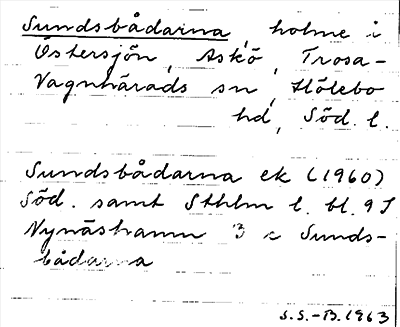 Sundsbådarna, holme i
Östersjön, Askö, Trosa-
Vagnhärads sn, Hölebo
hd, Söd. l.
Sundsbådarna ek (1960)
Söd. samt Sthlm l. bl. 9 I
Nynäshamn 3 c Sunds-
bådarna
S.S.-B. 1963